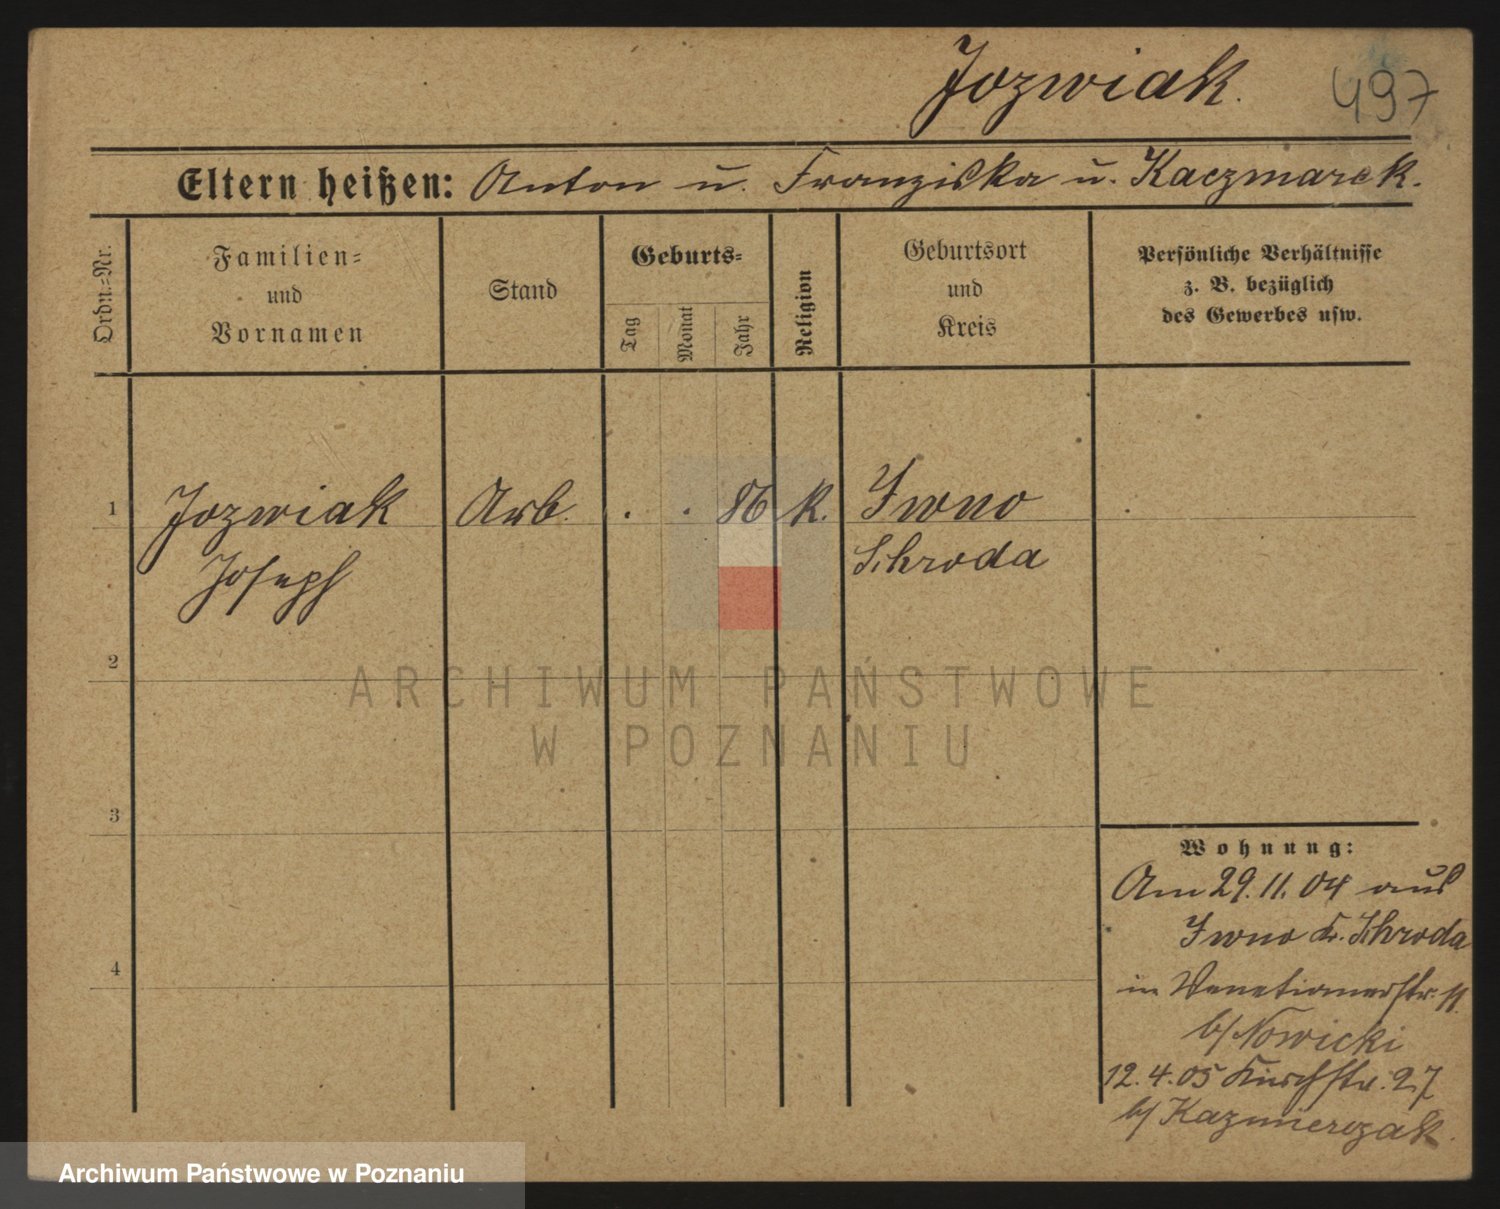 Jozwiak. 497
Eltern heißen: Anton u. Franziska u. Kaczmarek.
Ordn.=Nr.
Familien=
und
Vornamen
Stand
Geburts=
Tag
Monat
Jahr
Religion
Geburtsort
und
Kreis
Persönliche Verhältnisse
z. B. bezüglich
des Gewerbes usw.
1 Jozwiak Arb. . . 86 k. Iwno .
Joseph Schroda
2
ARCHIWUM PAŃSTWOWE
W POZNANIU
3
4
Wohnung:
Am 29.11.04 aus
Iwno Kr. Schroda
in Venetianerstr. 11.
b/ Nowicki
12.4.05 Kirchstr. 27
b/ Kazmierczak.
Archiwum Państwowe w Poznaniu